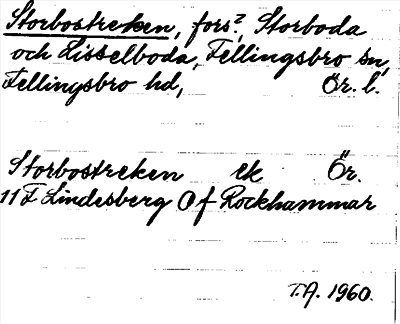 Storbostreken, fors?, Storboda
och Lisselboda, Fellingsbro sn,
Fellingsbro hd, Ör. l.
Storbostreken ek Ör.
11 F Lindesberg Of Rockhammar
T.A. 1960.